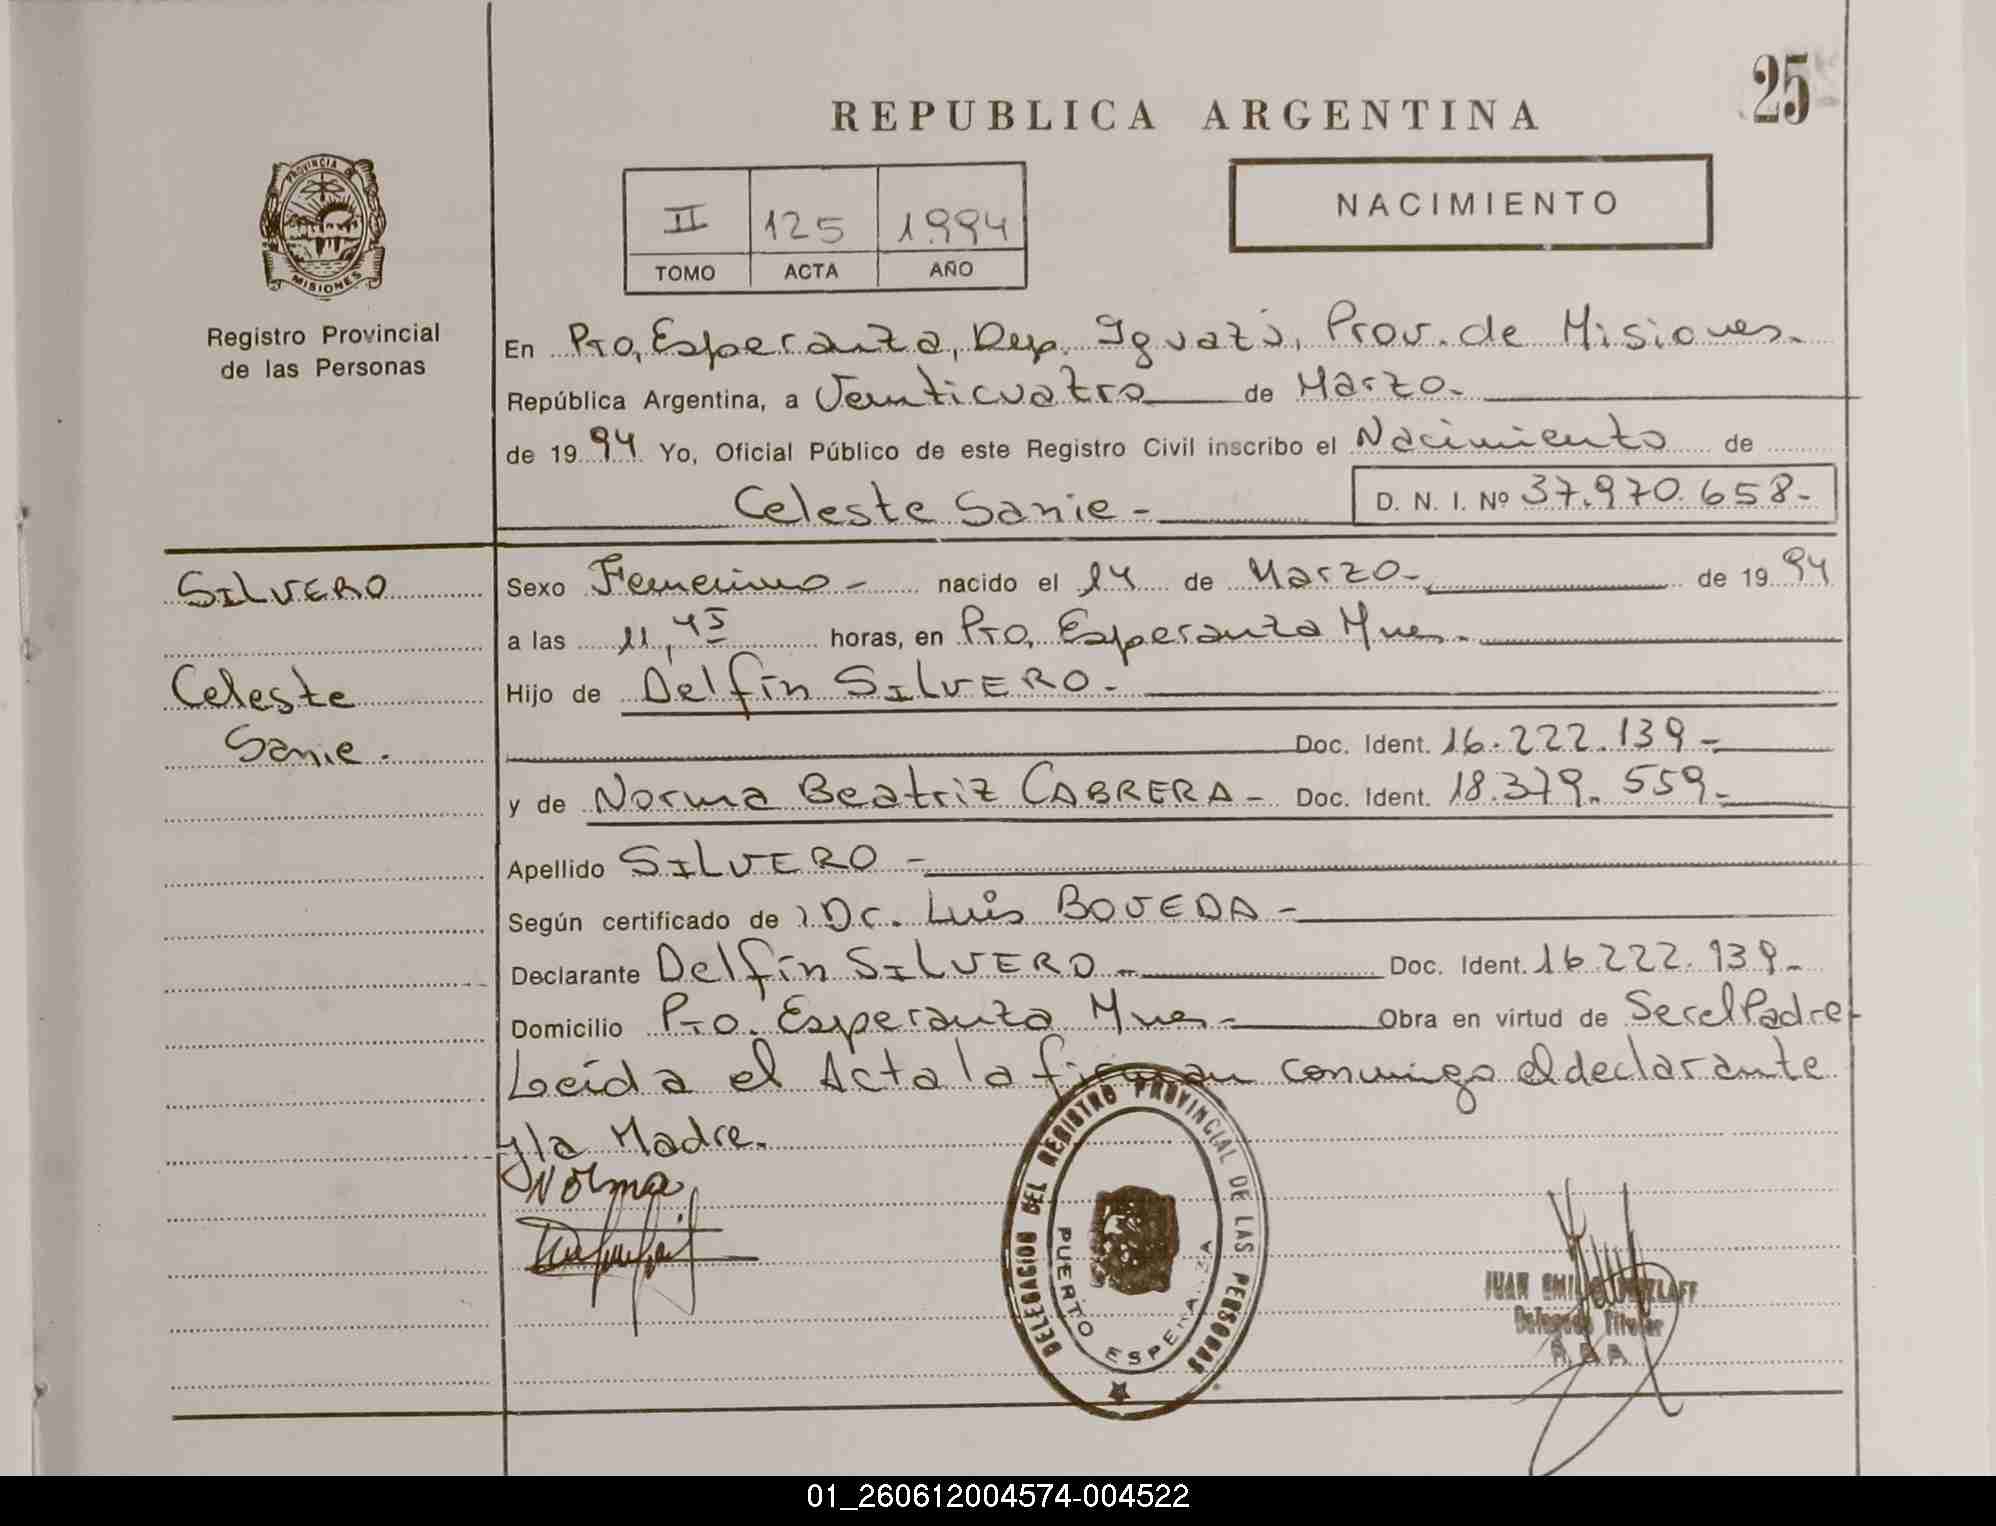 25
REPUBLICA ARGENTINA
PROVINCIA
MISIONES
Registro Provincial
de las Personas
II 125 1994
TOMO ACTA AÑO
NACIMIENTO
En Pto, Esperanza, Dep. Iguazú, Prov. de Misiones.
República Argentina, a Veinticuatro de Marzo.
de 1994 Yo, Oficial Público de este Registro Civil inscribo el Nacimiento de
Celeste Sanie -
D. N. I. Nº 37.970.658-
SILVERO
Celeste
Sanie.
Sexo Femenino - nacido el 14 de Marzo- de 1994
a las 11,45 horas, en Pto. Esperanza Mnes.
Hijo de Delfín SILVERO-
Doc. Ident. 16.222.139-
y de Norma Beatriz CABRERA- Doc. Ident. 18.379.559-
Apellido SILVERO -
Según certificado de Dr. Luis BOVEDA-
Declarante Delfín SILVERO- Doc. Ident. 16.222.139-
Domicilio Pto. Esperanza Mnes- Obra en virtud de Ser el Padre-
Leída el Acta la firman conmigo el declarante
y la Madre.
Norma
DELEGACION DEL REGISTRO PROVINCIAL DE LAS PERSONAS
PUERTO ESPERANZA
JUAN EMILIO
Delegado Titular
01_260612004574-004522